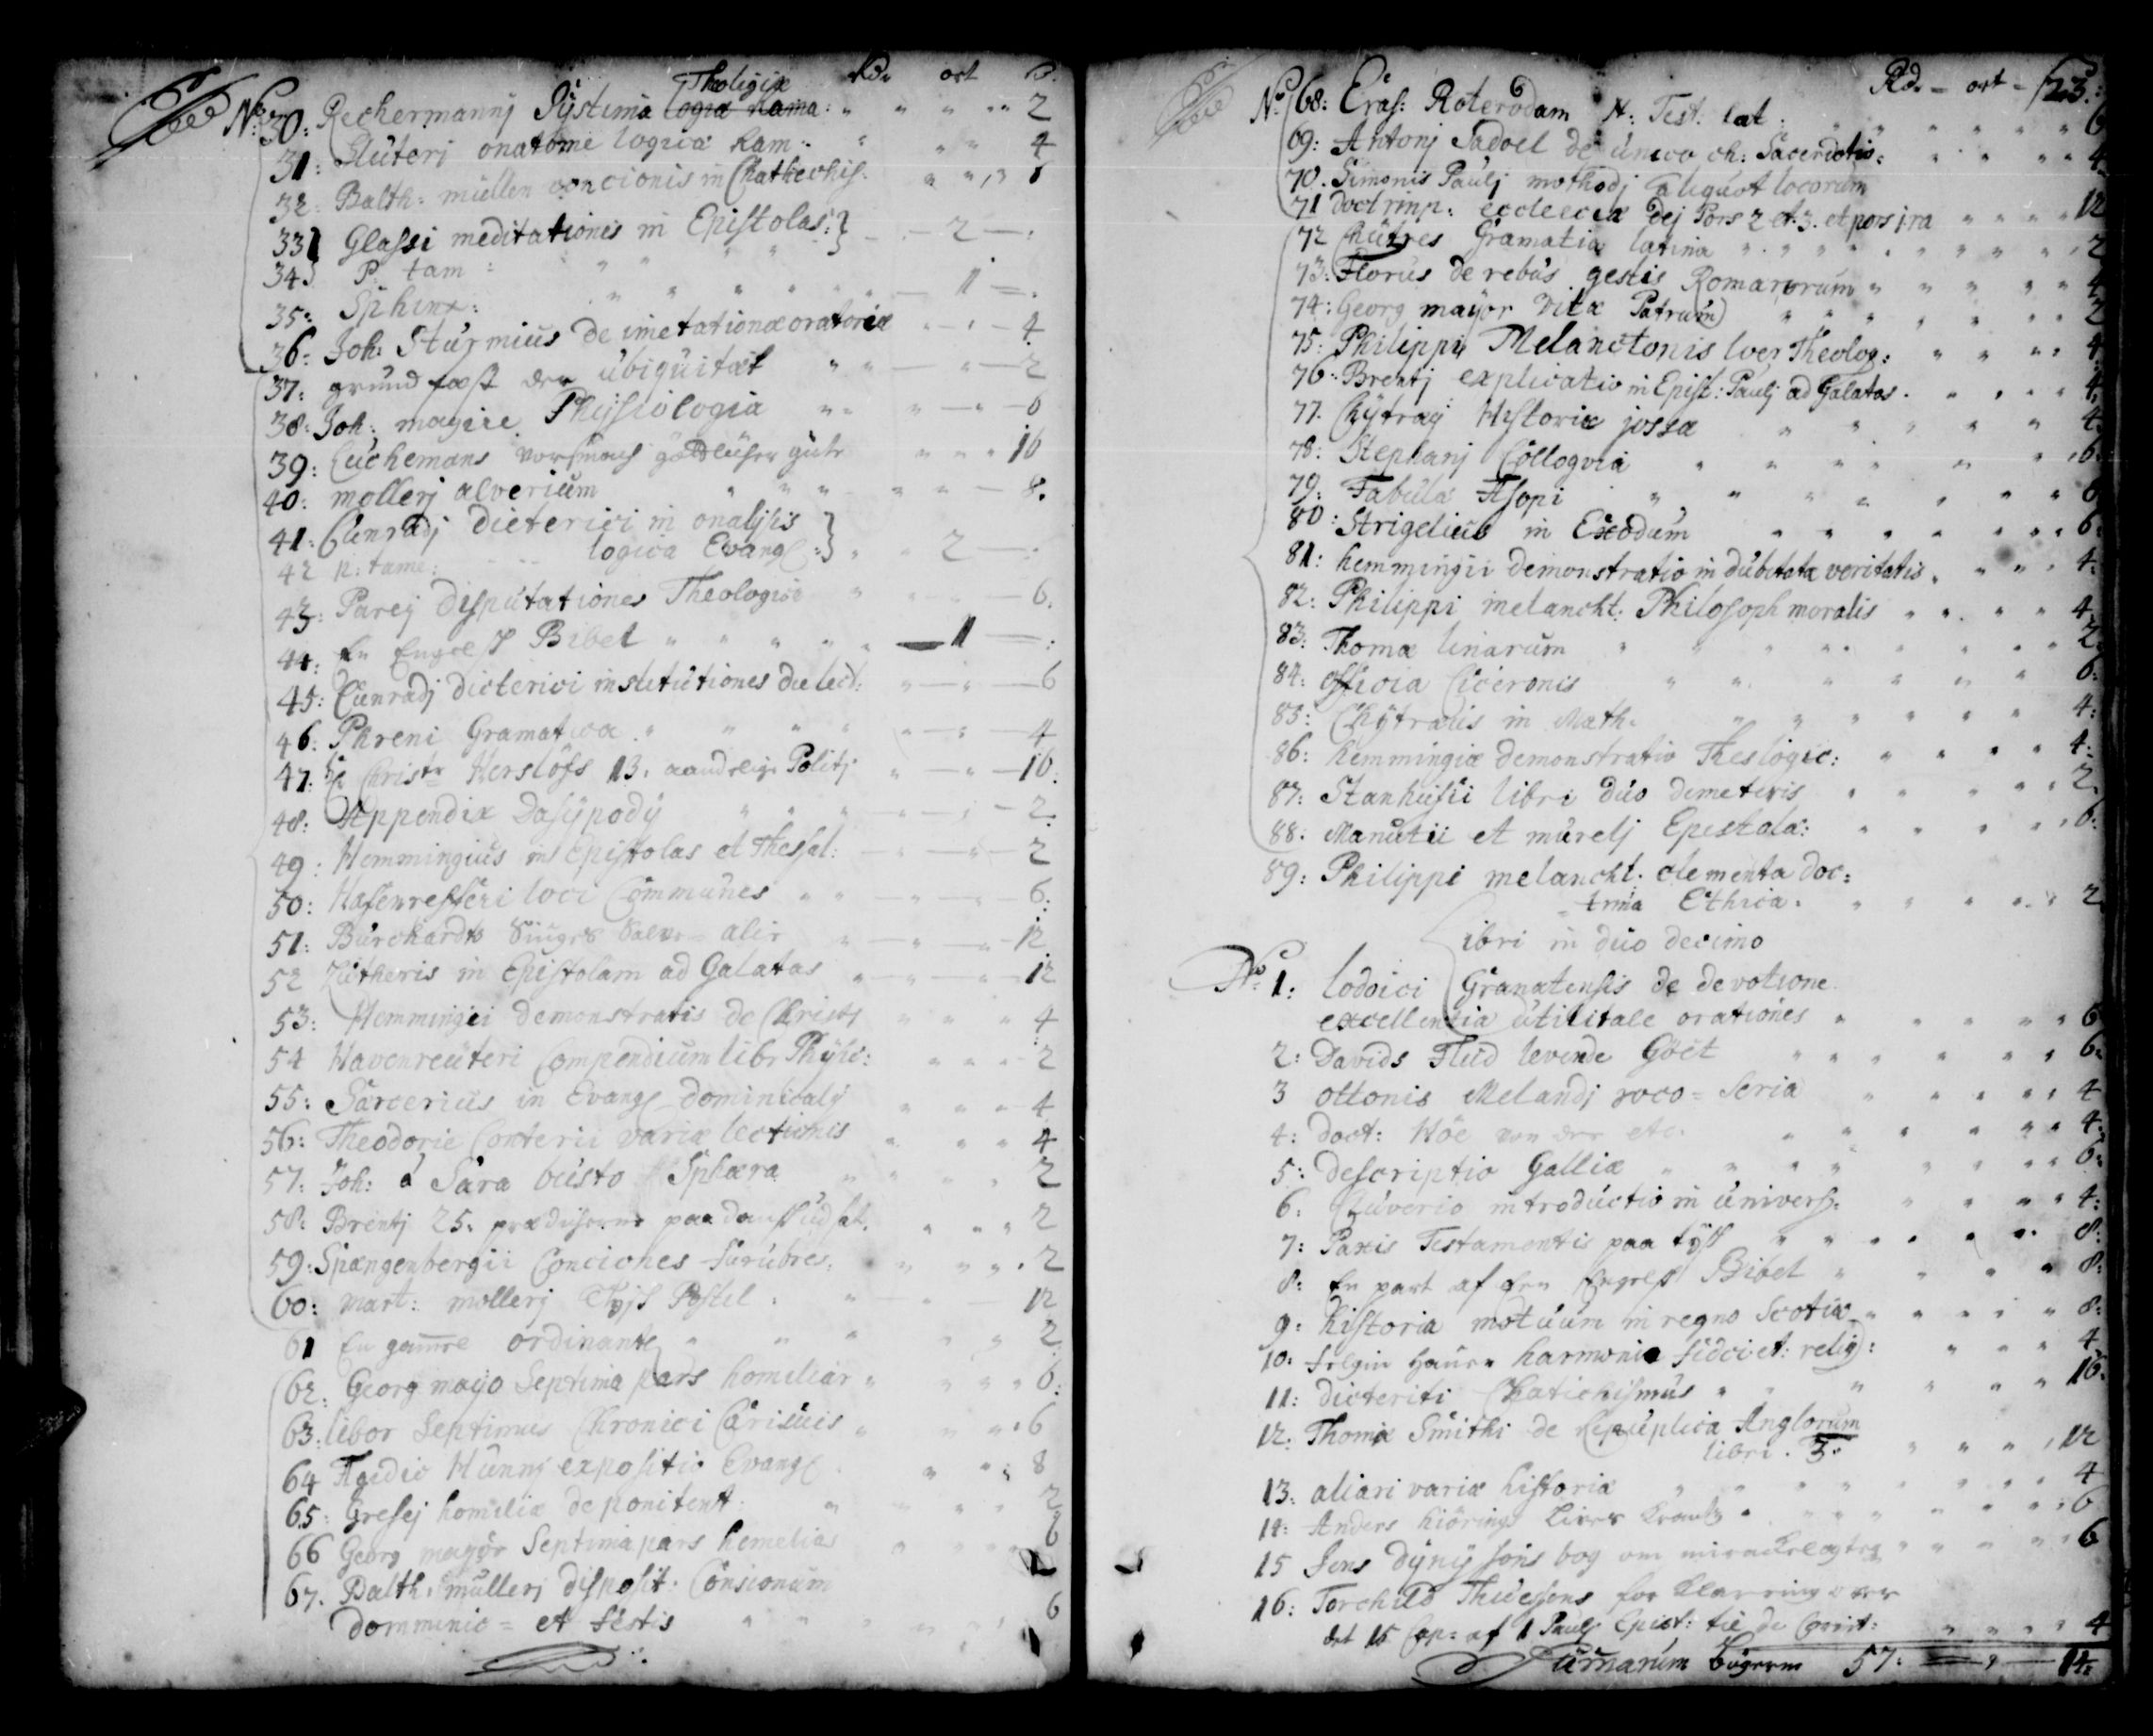 Rdr ort ß.
Theologiæ
No: 30: Keckermannj Sÿstima logiæ Rama: 2
31: Slúterj onatome logica Ram: 4
32: Balth: müllen concionis in Chathechis. 8
33 Glassi meditationis in Epistolas: 2
34 P: tam:
35: Sphinx: 1
36: Joh: Stúrmiús de imetationæ oratoriæ 4
37: grund fæst der úbiqúitæt 2
38: Joh: magire Phÿsiologia 6
39: Cúchemans vorsmack göttlicher güte 16
40: mollerj alverium 8.
41: Cúnradj Dieterici in onalÿsis
logica Evang: 2
42 p: tame:
43: Parej Dispútationes Theologici 6.
44: En Engelsk Bibel 1
45: Cúnradj dieterici institútiones dielect: 6
46: Phreni Gramatica 4
47: hr Christ Herslöfs 13. aandelige Politj 16.
48: Appendix Dasÿpodÿ 2.
49: Hemmingiús ins Epistolas et Thessal: 2
50: Hafenrefferi loci Commúnes 6.
51: Búrchardts 12
52 Lútheris in Epistolam ad Galatas 12
53: Hemmingii demonstratis de Christj 4
54 Havenreúteri Compendium libr Phÿsi: 2
55: Sarceriús in Evang dominicalj 4
56: Theodorie Conterii variæ lectionis 4
57: Joh: á Sara bústo Sphæra 2
58: Brentj 25. prædikener paa dansk udsat. 2
59: Spangenbergii Conciones fúnúbres. 2
60: Mart: mollerj Tÿsk Postel. 12
61 En gamle ordinants 2.
62. Georg mayo Septima pars homiliar 6.
63: libor Septimus Chronici Carionis 6
64 Ægidie Húnnj expositio Evang 8
65: Gresej homiliæ de ponitent: 2
66 Georg mayor Septima pars hemelias 6
67. Balth: múllerj disposit: Consionum
domminic= et festis 6
Rd. – ort – ß
No: 68: Eras: Roterodam N: Test: lat: 6
69: Antonj Sadoel de único ch: Sacerdotio: 4
70. Simonis Paúlj methodj aliqúot locorum
71 doctrinp: ecclecciæ dej Pars 2 et 3. et pars j:ra 12
72 Chútres Gramatia latina 2
73: Florús de rebús gestis Romanorum 4
74: Georg mayor vitæ Patrúm 2
75: Philippi Melanctonis loci Theolog: 4
76: Brentj explicatio in Epist: Paúlj ad Galatas. 4.
77. Chÿtraej Historiæ jossæ 4.
78: Stephanj Colloqvia 6.
79: Fabúlæ Æsopi 6
80: Strigeliús in Exodúm 6.
81: hemmingii demonstratio in dúbitatæ veritatis. 4.
82: Philippi melancht: Philosoph moralis 4.
83: Thoma linarúm 2
84: officia Ciceronis 6.
85: Chÿtraús in Math: 4.
86: hemmingiæ demonstratio Theslogic: 4.
87: Stanhúsii libri dúo demeteris 2.
88. Manútii et múretj Epestola: 6.
89: Philippi melancht. elementa doc:
trina Ethica. 2
libri in dúo decimo
No: 1: lodoici Granatensis de devotione
excellentia útilitate orationes 6
2: Davids Flúd levende Göet 6.
3 ottonis Melandj joco=Seria 4
4: doct: Höe von der etc. 4.
5: descriptio Galliæ 6.
6: Clúverio introdúctio in únivers: 4.
7: Paxis Testamentis paa tÿsk 8.
8: En part af en Engelsk Bibel 8.
9: historia motúúm in regno Scotiæ 8.
10: harmonia fidei et: relig: 4
11: dicteriti Chatichismús 16.
12: Thomæ Smithi de Repúplica Anglorum
libri. 3. 12
13: aliari variæ historiæ 4
14: Anders hiörings Liver Krantz 6
15 Jens Dÿnÿsöns bog om 6
16: Torchild for Klarring over
det 15 Cap: af 1 Paulj Epist: til de Corint: 4
Súmarúm bögerne 57: – 14: